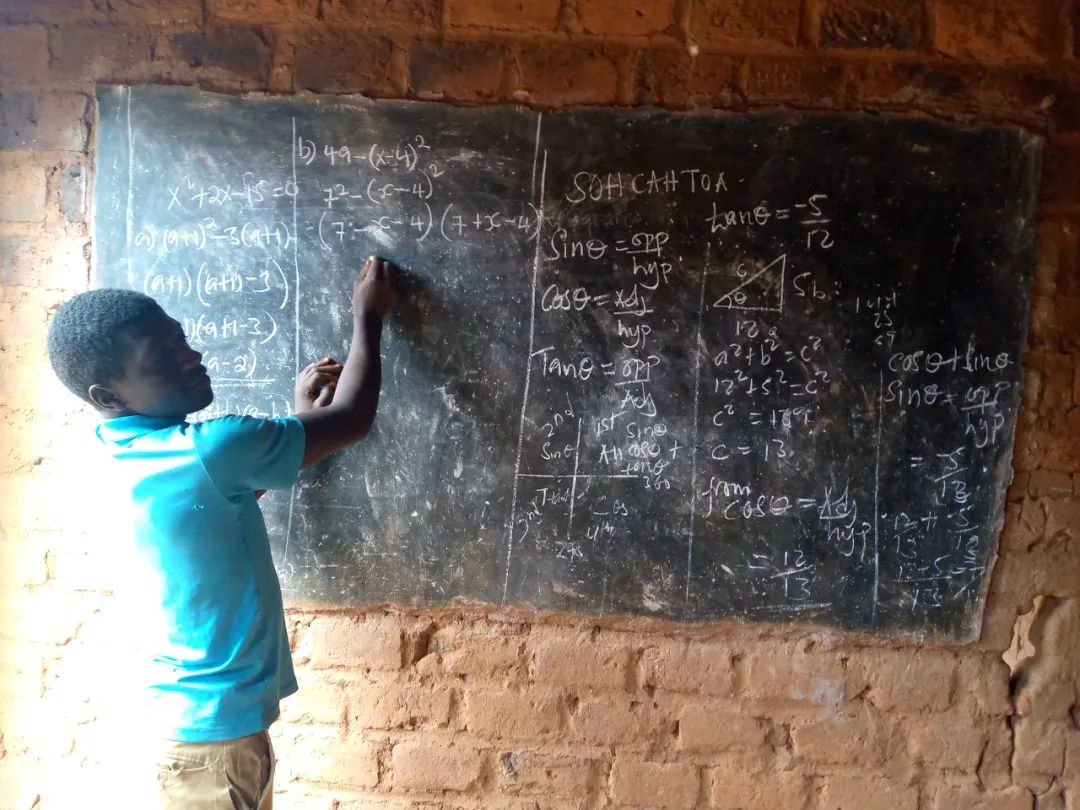 x²+2x-15=0
a) (a+1)²-3(a+1)
(a+1)(a+1)-3)
(a+1-3)
a-2)
b) 49-(x-4)²
7²-(x-4)²
=(7-x-4)(7+x-4)
SOHCAHTOA
Sinθ = opp/hyp
Cosθ = Adj/hyp
Tanθ = opp/Adj
2nd
Sinθ
1st
Sinθ
All cosθ +
tanθ
360
3rd
Cos
4th
270
tanθ = -5/12
c
θ
5b
12a
a²+b²=c²
12²+5²=c²
c² = 169
c = 13
from
cosθ = Adj/hyp
= 12/13
cosθ+sinθ
Sinθ = opp/hyp
= -5/13
12/13 + -5/13
12-5/13